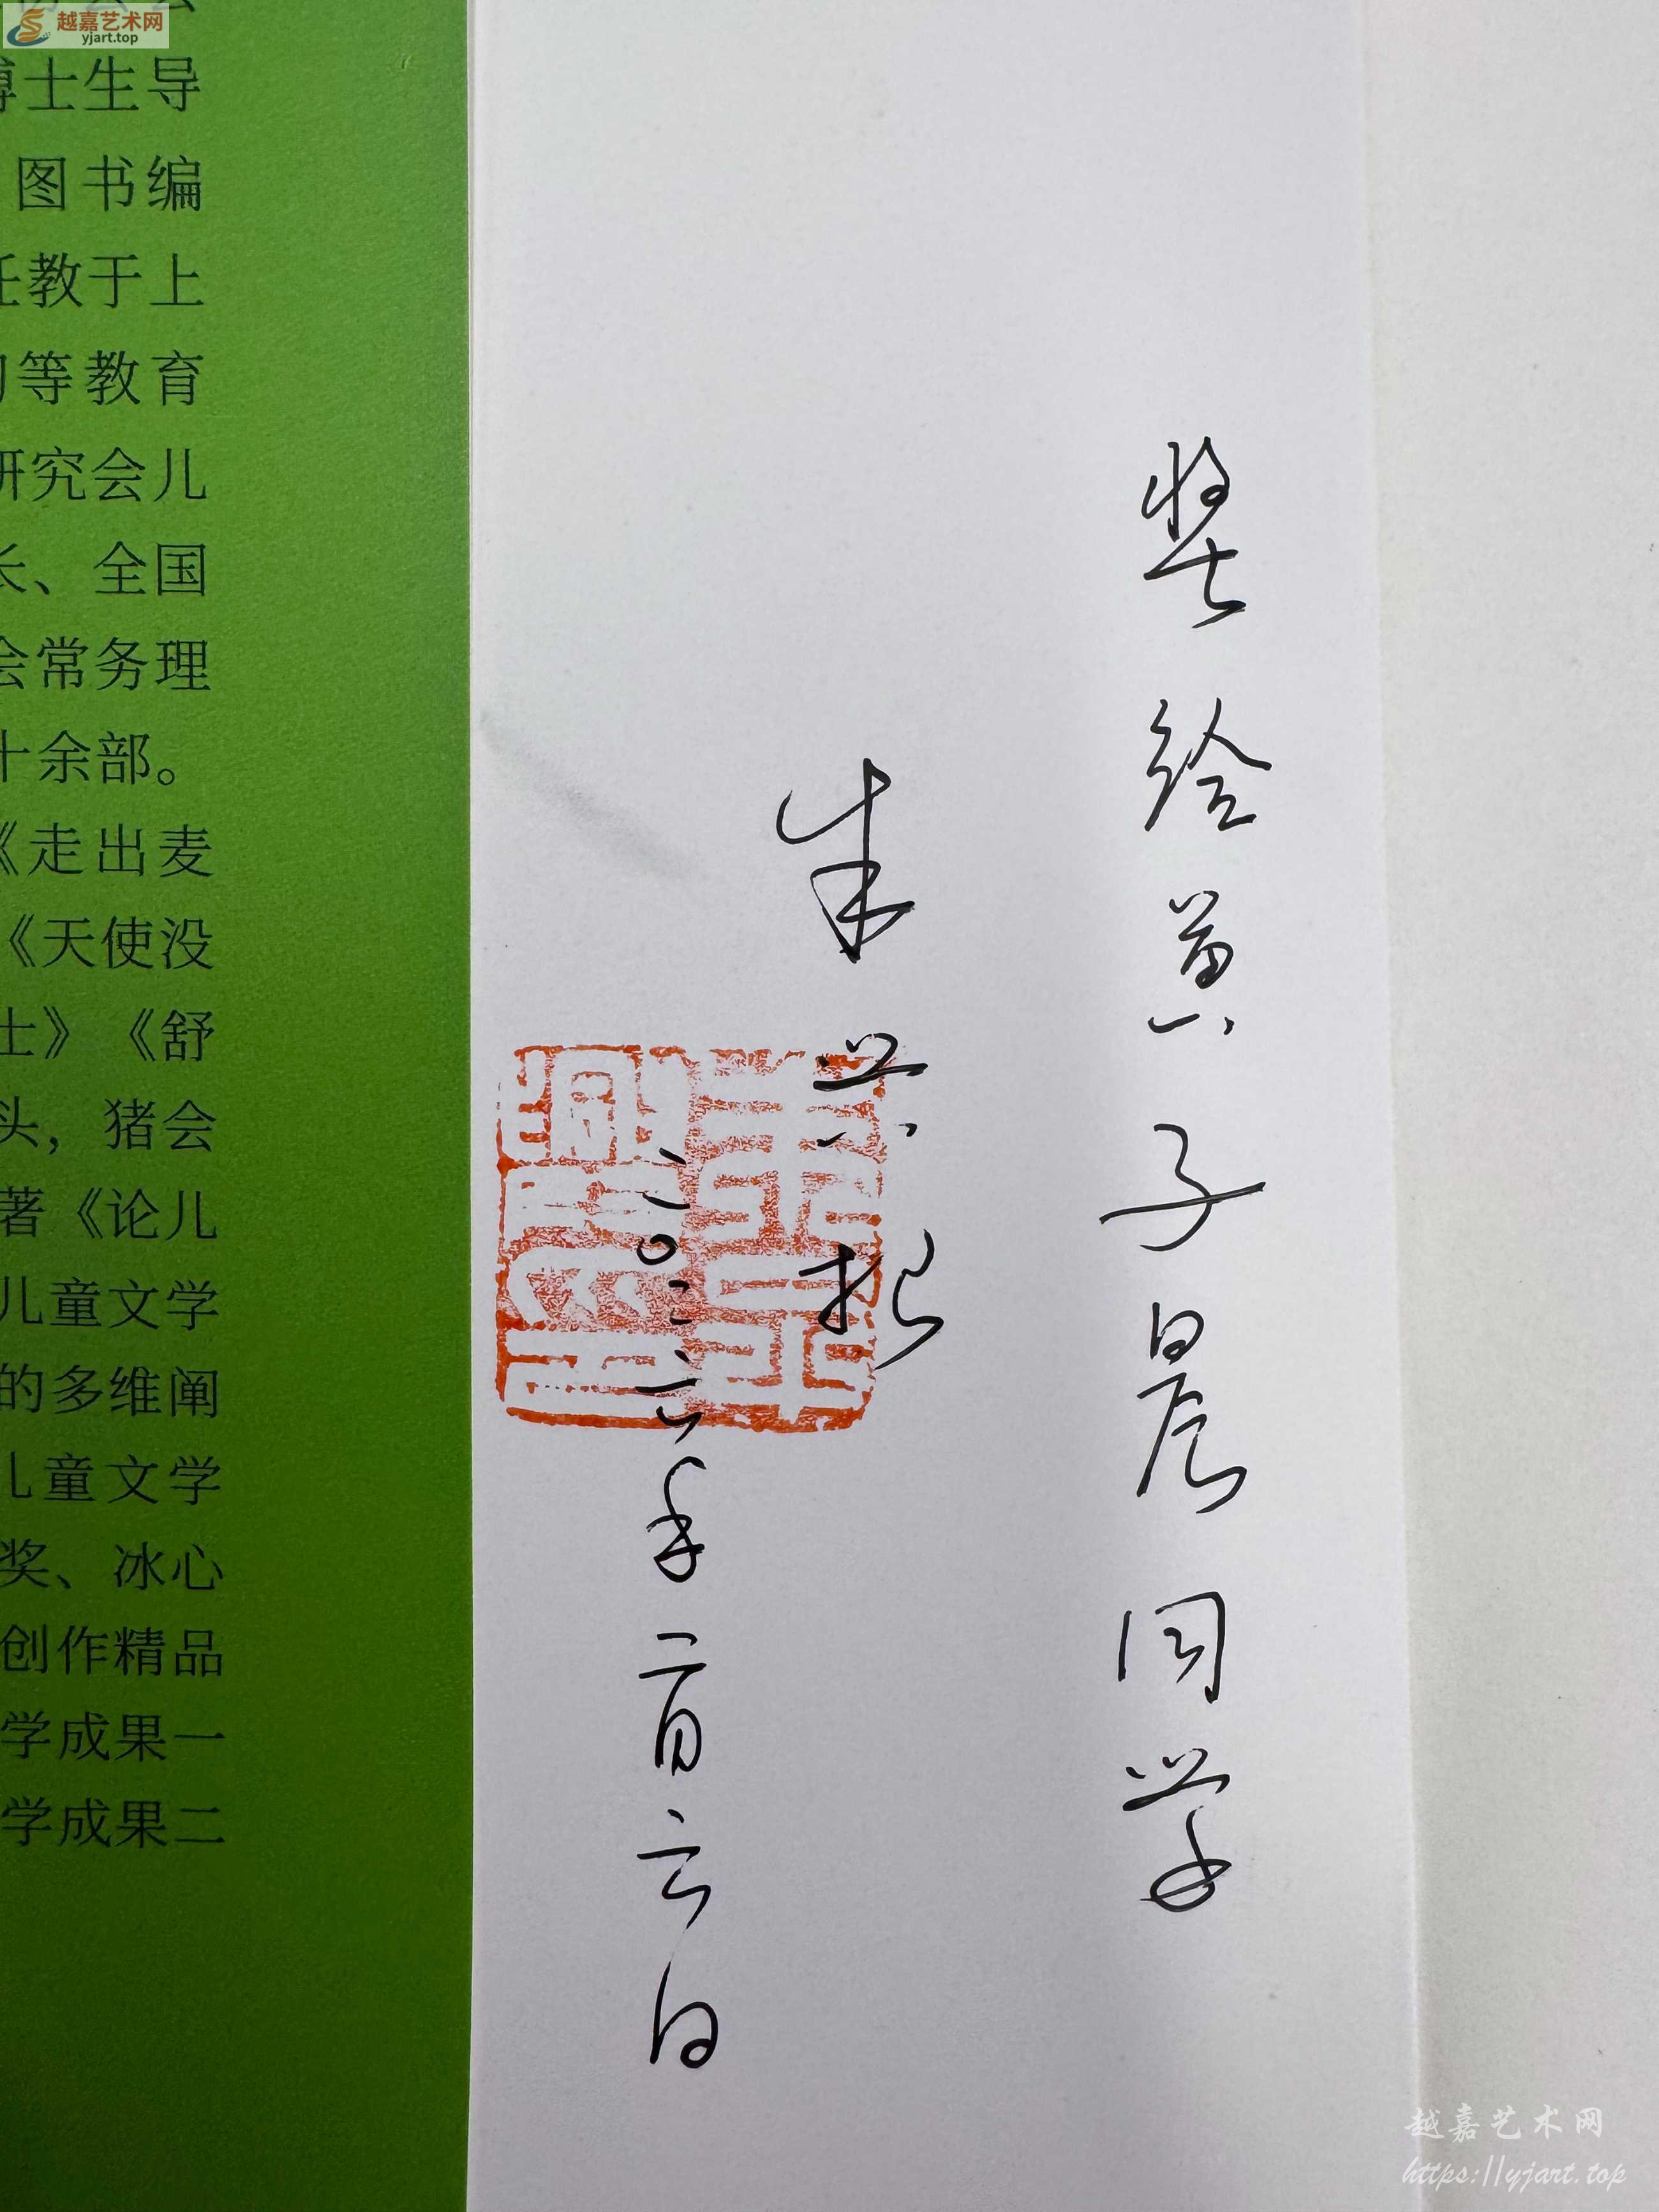 越嘉艺术网
yjart.top
博士生导
图书编
任教于上
等教育
研究会儿
长、全国
会常务理
十余部。
《走出麦
《天使没
士》《舒
头，猪会
著《论儿
儿童文学
的多维阐
儿童文学
奖、冰心
创作精品
学成果一
学成果二
奖给黄子晨同学
朱兴
二〇二六年二月六日
越嘉艺术网
https://yjart.top